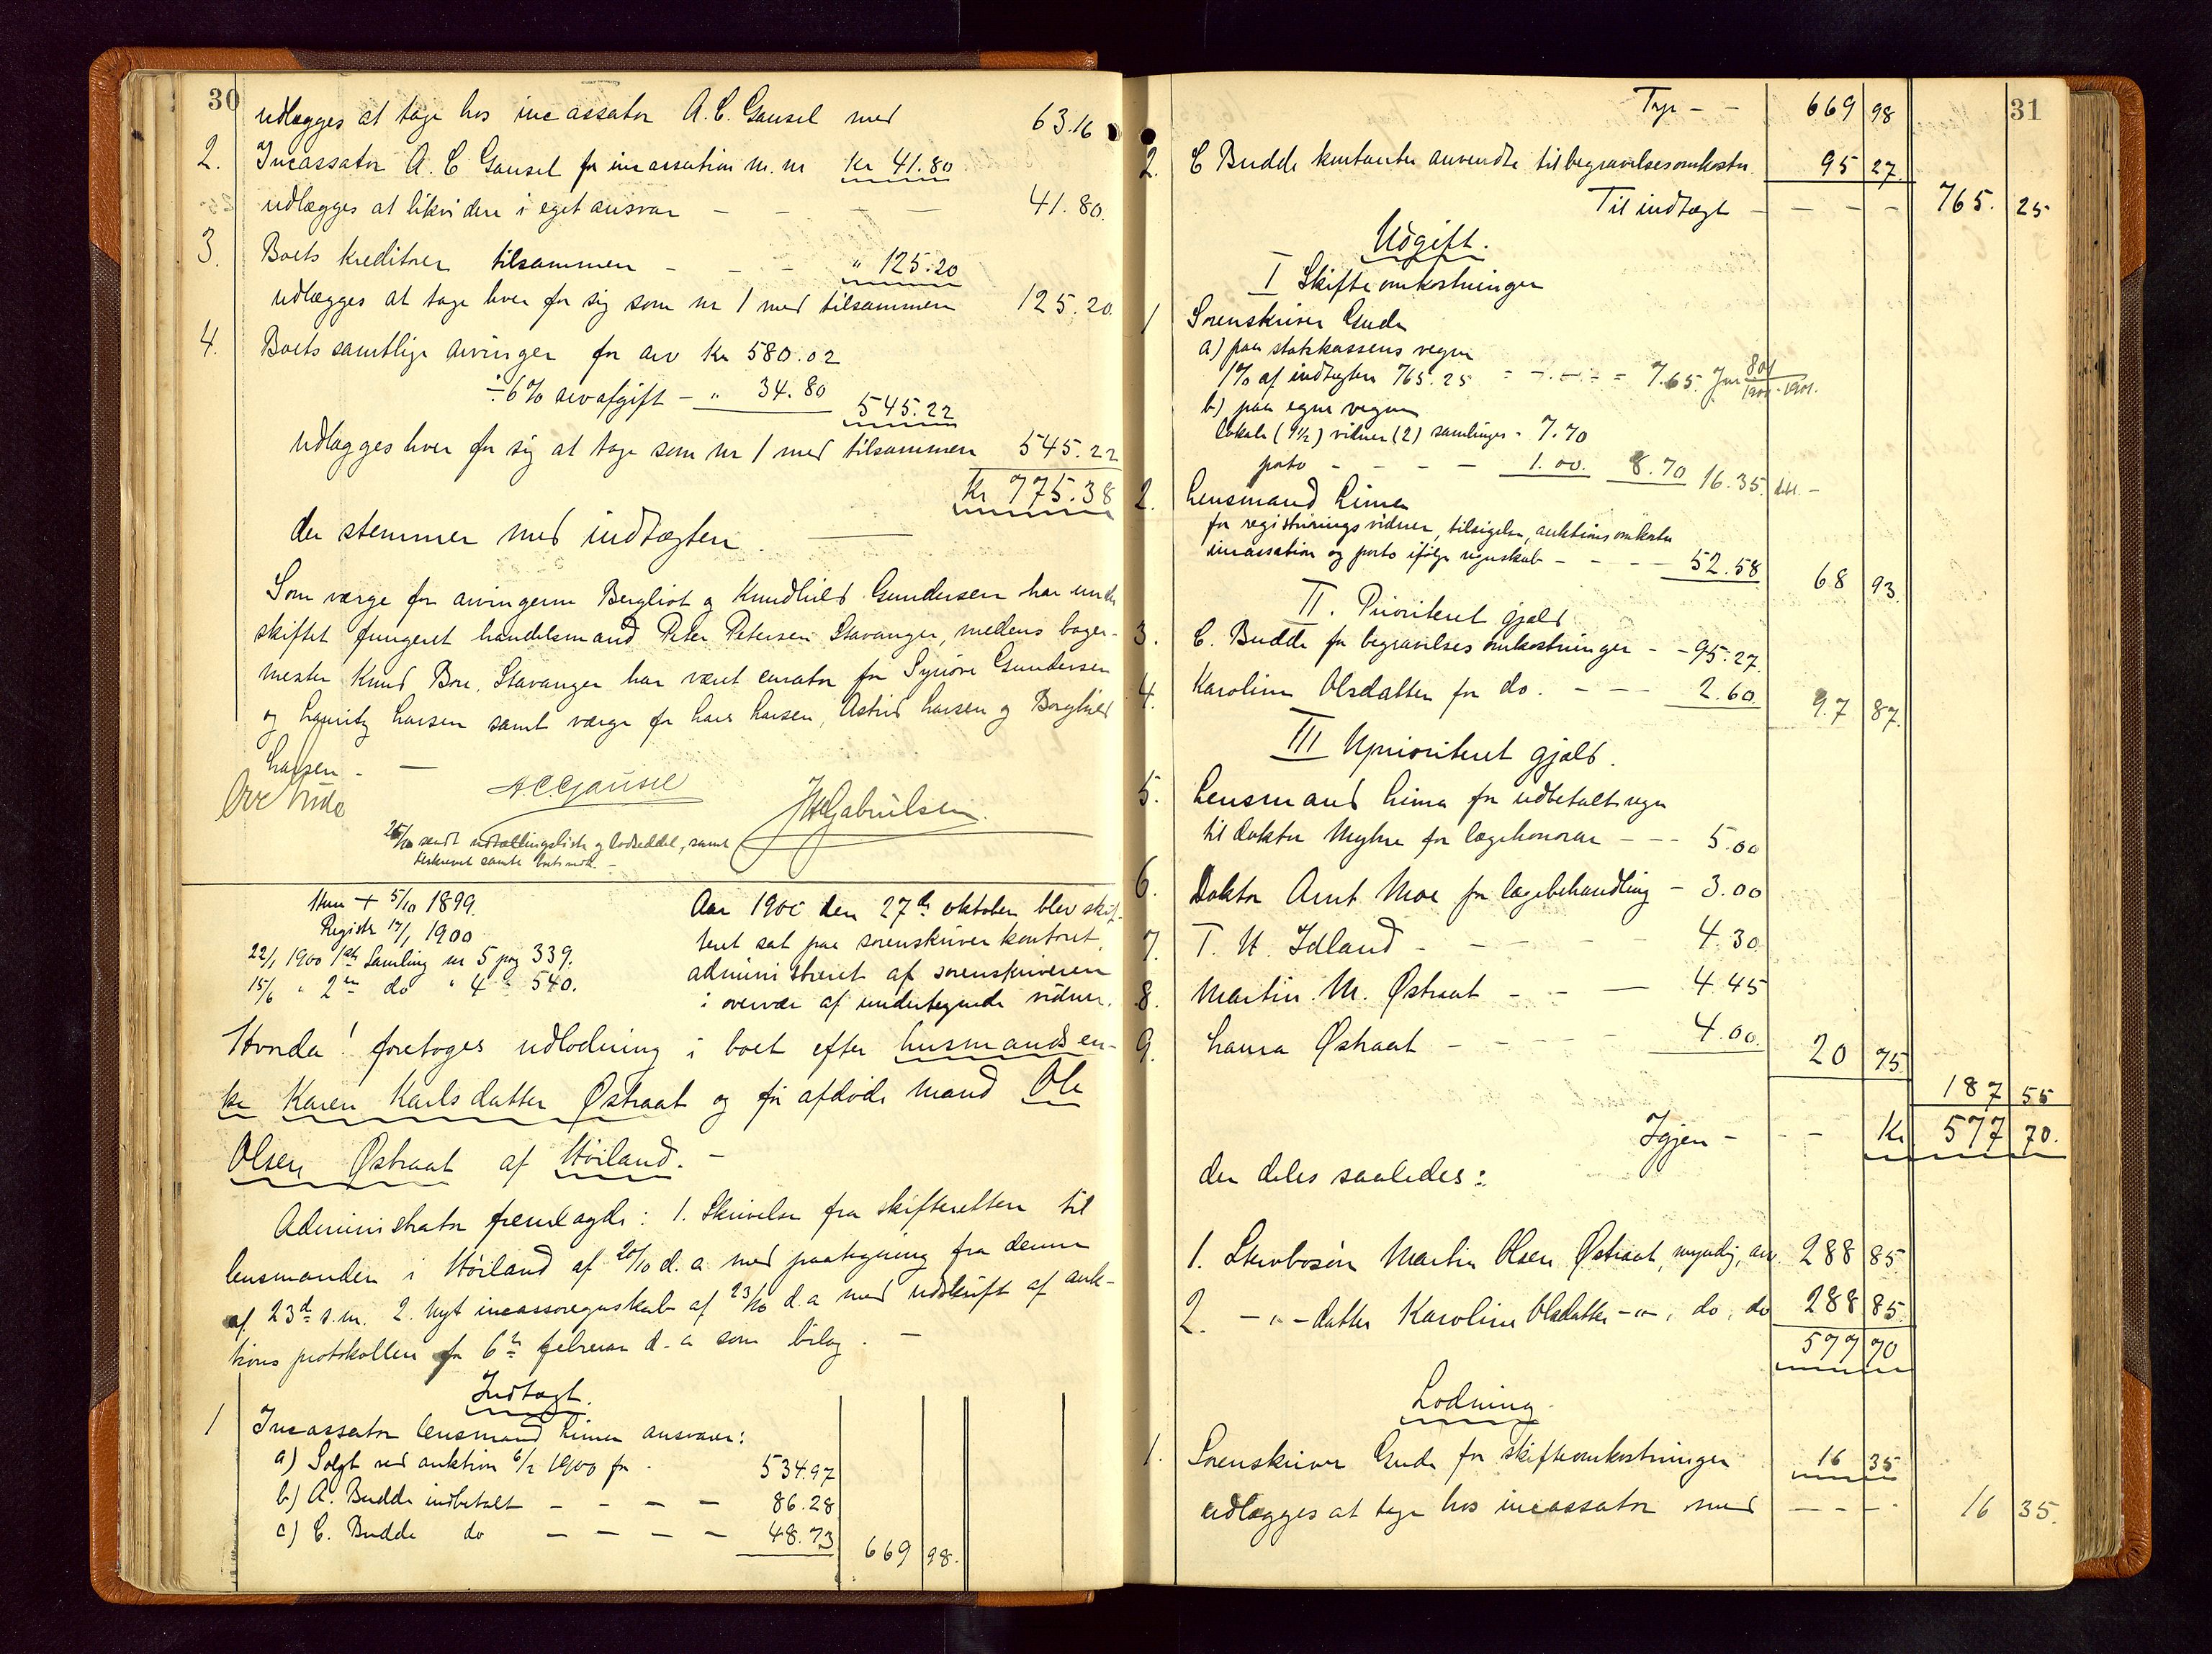 30
udlægges at tage hos incassator A. C. Gausel med 63.16
2. Incassator A. C. Gausel for incassation m. m. Kr 41.80
udlægges at likvidere i eget ansvar - - - 41.80.
3. Boets kreditorer tilsammen - - - " 125.20
udlægges at tage hver for sig som nr 1 med tilsammen 125.20.
4. Boets samtlige arvinger for arv Kr 580.02
÷ 6% arvafgift - " 34.80
545.22
udlægges hver for sig at tage som nr 1 med tilsammen 545.22
Kr 775.38
der stemmer med indtægten.
Som værge for arvingerne Bergliot og Knudhild Gundersen har under
skiftet fungeret handelsmand Peter Petersen Stavanger, medens bager-
mester Knud Bore, Stavanger har været curator for Synøve Gundersen
og Lauritz Larsen samt værge for Lars Larsen, Astrid Larsen og Borghild
Larsen. -
Ove Gude
A.C. Gausel
Gabrielsen.
26/10 sendt udtællingsliste og lodseddel, samt
Hun + 5/10 1899.
Registr 17/1 1900
22/1 1900 1ste Samling nr 5 pag 339.
15/6 " 2en do " 4 " 540.
Aar 1900 den 27de oktober blev skif-
teret sat paa sorenskriverkontoret,
administreret af sorenskriveren
i overvær af undertegnede vidner.
Hvorda! foretoges udlodning i boet efter husmandsen-
ke Karen Karlsdatter Østraat og før afdøde mand Ole
Olsen Østraat af Høiland. -
Administrator fremlagde: 1. Skrivelse fra skifteretten til
lensmanden i Høiland af 20/10 d. a. med paategning fra denne
af 23de s. m. 2. Nyt incassoregnskab af 23/10 d. a med udskrift af auk-
tionsprotokollen for 6te februar d. a som bilag. -
Indtægt.
1 Incassator lensmand Lima ansvarer:
a) Solgt ved auktion 6/2 1900 for - 534.97
b) A. Budde indbetalt - - - - 86.28
c) C. Budde do - - - - 48.73 669 98.
31
Tryr - - 669 98
2. C Budde kontanter anvendte til begravelsesomkostn. 95 27.
Til indtægt - - - - 765. 25
Udgift.
I Skifteomkostninger
1 Sorenskriver Gude
a) paa statskassens vegne
1% af indtægten 765.25 - - - - 7.65. Jnr 801/1900-1901.
b) paa egne vegne
lokale (1½) vidner (2) samlinger - 7.70
porto - - - - 1.00. 8.70 16.35.
2. Lensmand Lima
for registreringsvidner, tilsigelse, auktionsomkostn
incassation og porto ifølge regnskab - - - - 52.58 68 93.
II. Prioriteret gjæld
3. C. Budde for begravelsesomkostninger - - 95.27.
4. Karoline Olsdatter for do. - - - 2.60. 97 87.
III Uprioriteret gjæld.
5. Lensmand Lima for udbetalt regn
til doktor Myhre for lægehonorar - - - 5.00
6. Doktor Arnt Moe for lægebehandling - 3.00
7. T. U. Idland - - - - 4.30
8. Martin M. Østraat - - - 4.45
9. Laura Østraat - - - - 4.00. 20 75.
187 55
Igjen - - - Kr 577 70.
der deles saaledes:
1. Stervbosøn Martin Olsen Østraat, myndig, arv. 288 85.
2. - " - datter Karoline Olsdatter - " - , do, do 288 85.
577 70
Lodning.
1. Sorenskriver Gude for skifteomkostninger 16 35
udlægges at tage hos incassator med - - - 16 35.